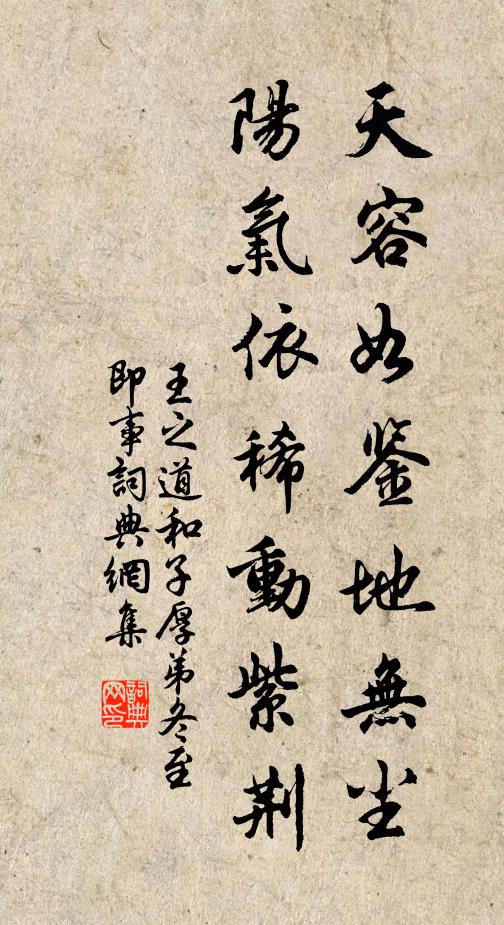 天容如鉴地無尘
陽氣依稀動紫荆
王之道和子厚弟冬至
即事詞典網集
詞典网印